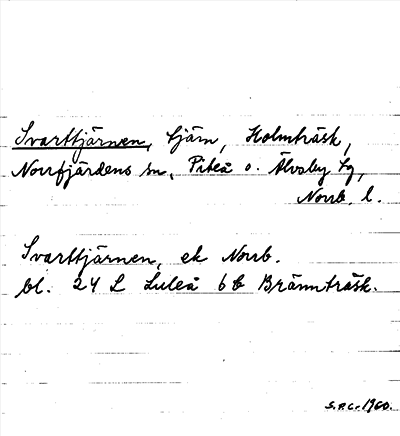 Svarttjärnen, tjärn, Holmträsk,
Norrfjärdens sn, Piteå o. Älvsby tg,
Norrb. l.
Svarttjärnen, ek Norrb.
bl. 24 L Luleå 6 b Brännträsk.
S.P.C. 1960.